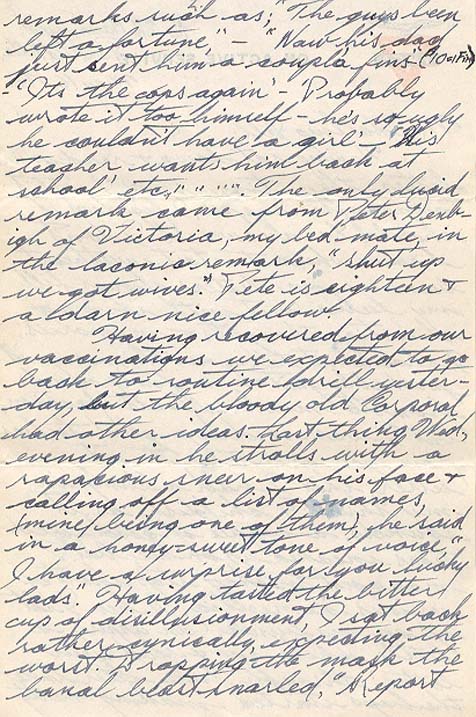 remarks such as; "The guys been
left a fortune," – "Naw his dad
just sent him a coupla fins–
"Its the cops again' – 'Probably
wrote it too himself – he's so ugly
he couldn't have a girl' – "His
teacher wants him back at
school' etc., " " " ". The only lucid
remark came from Peter Denb-
igh of Victoria, my bed mate, in
the laconic remark, "shut up
we got wives". Pete is eighteen &
a darn nice fellow.
Having recovered from our
vaccinations we expected to go
back to routine drill yester-
day, but the bloody old Corporal
had other ideas. Last thing Wed.,
evening in he strolls with a
rapacious sneer on his face &
calling off a list of names,
(mine being one of them), he said
in a honey-sweet tone of voice, "
I have a surprise for you lucky
lads". Having tasted the bitter
cup of disillusionment, I sat back
rather cynically, expecting the
worst. Dropping the mask the
banal beast snarled, "Report